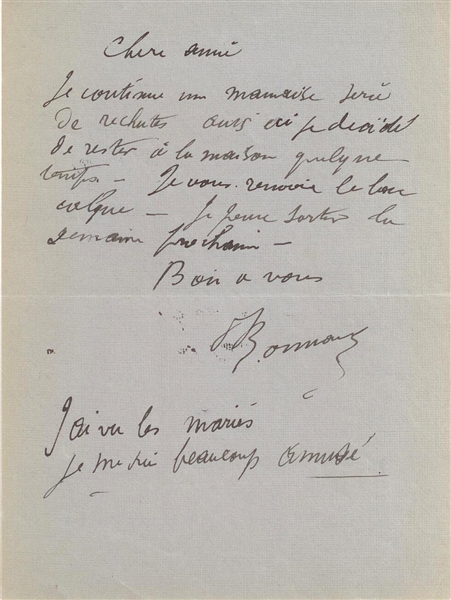 Chere amie
Je continue une mauvaise serie
de rechutes aussi ai je decidé
de rester à la maison quelque
temps – Je vous renvoie le
calque – Je pense sortir la
semaine prochaine –
Bon a vous
J'ai vu les mariés
je me suis beaucoup amusé.